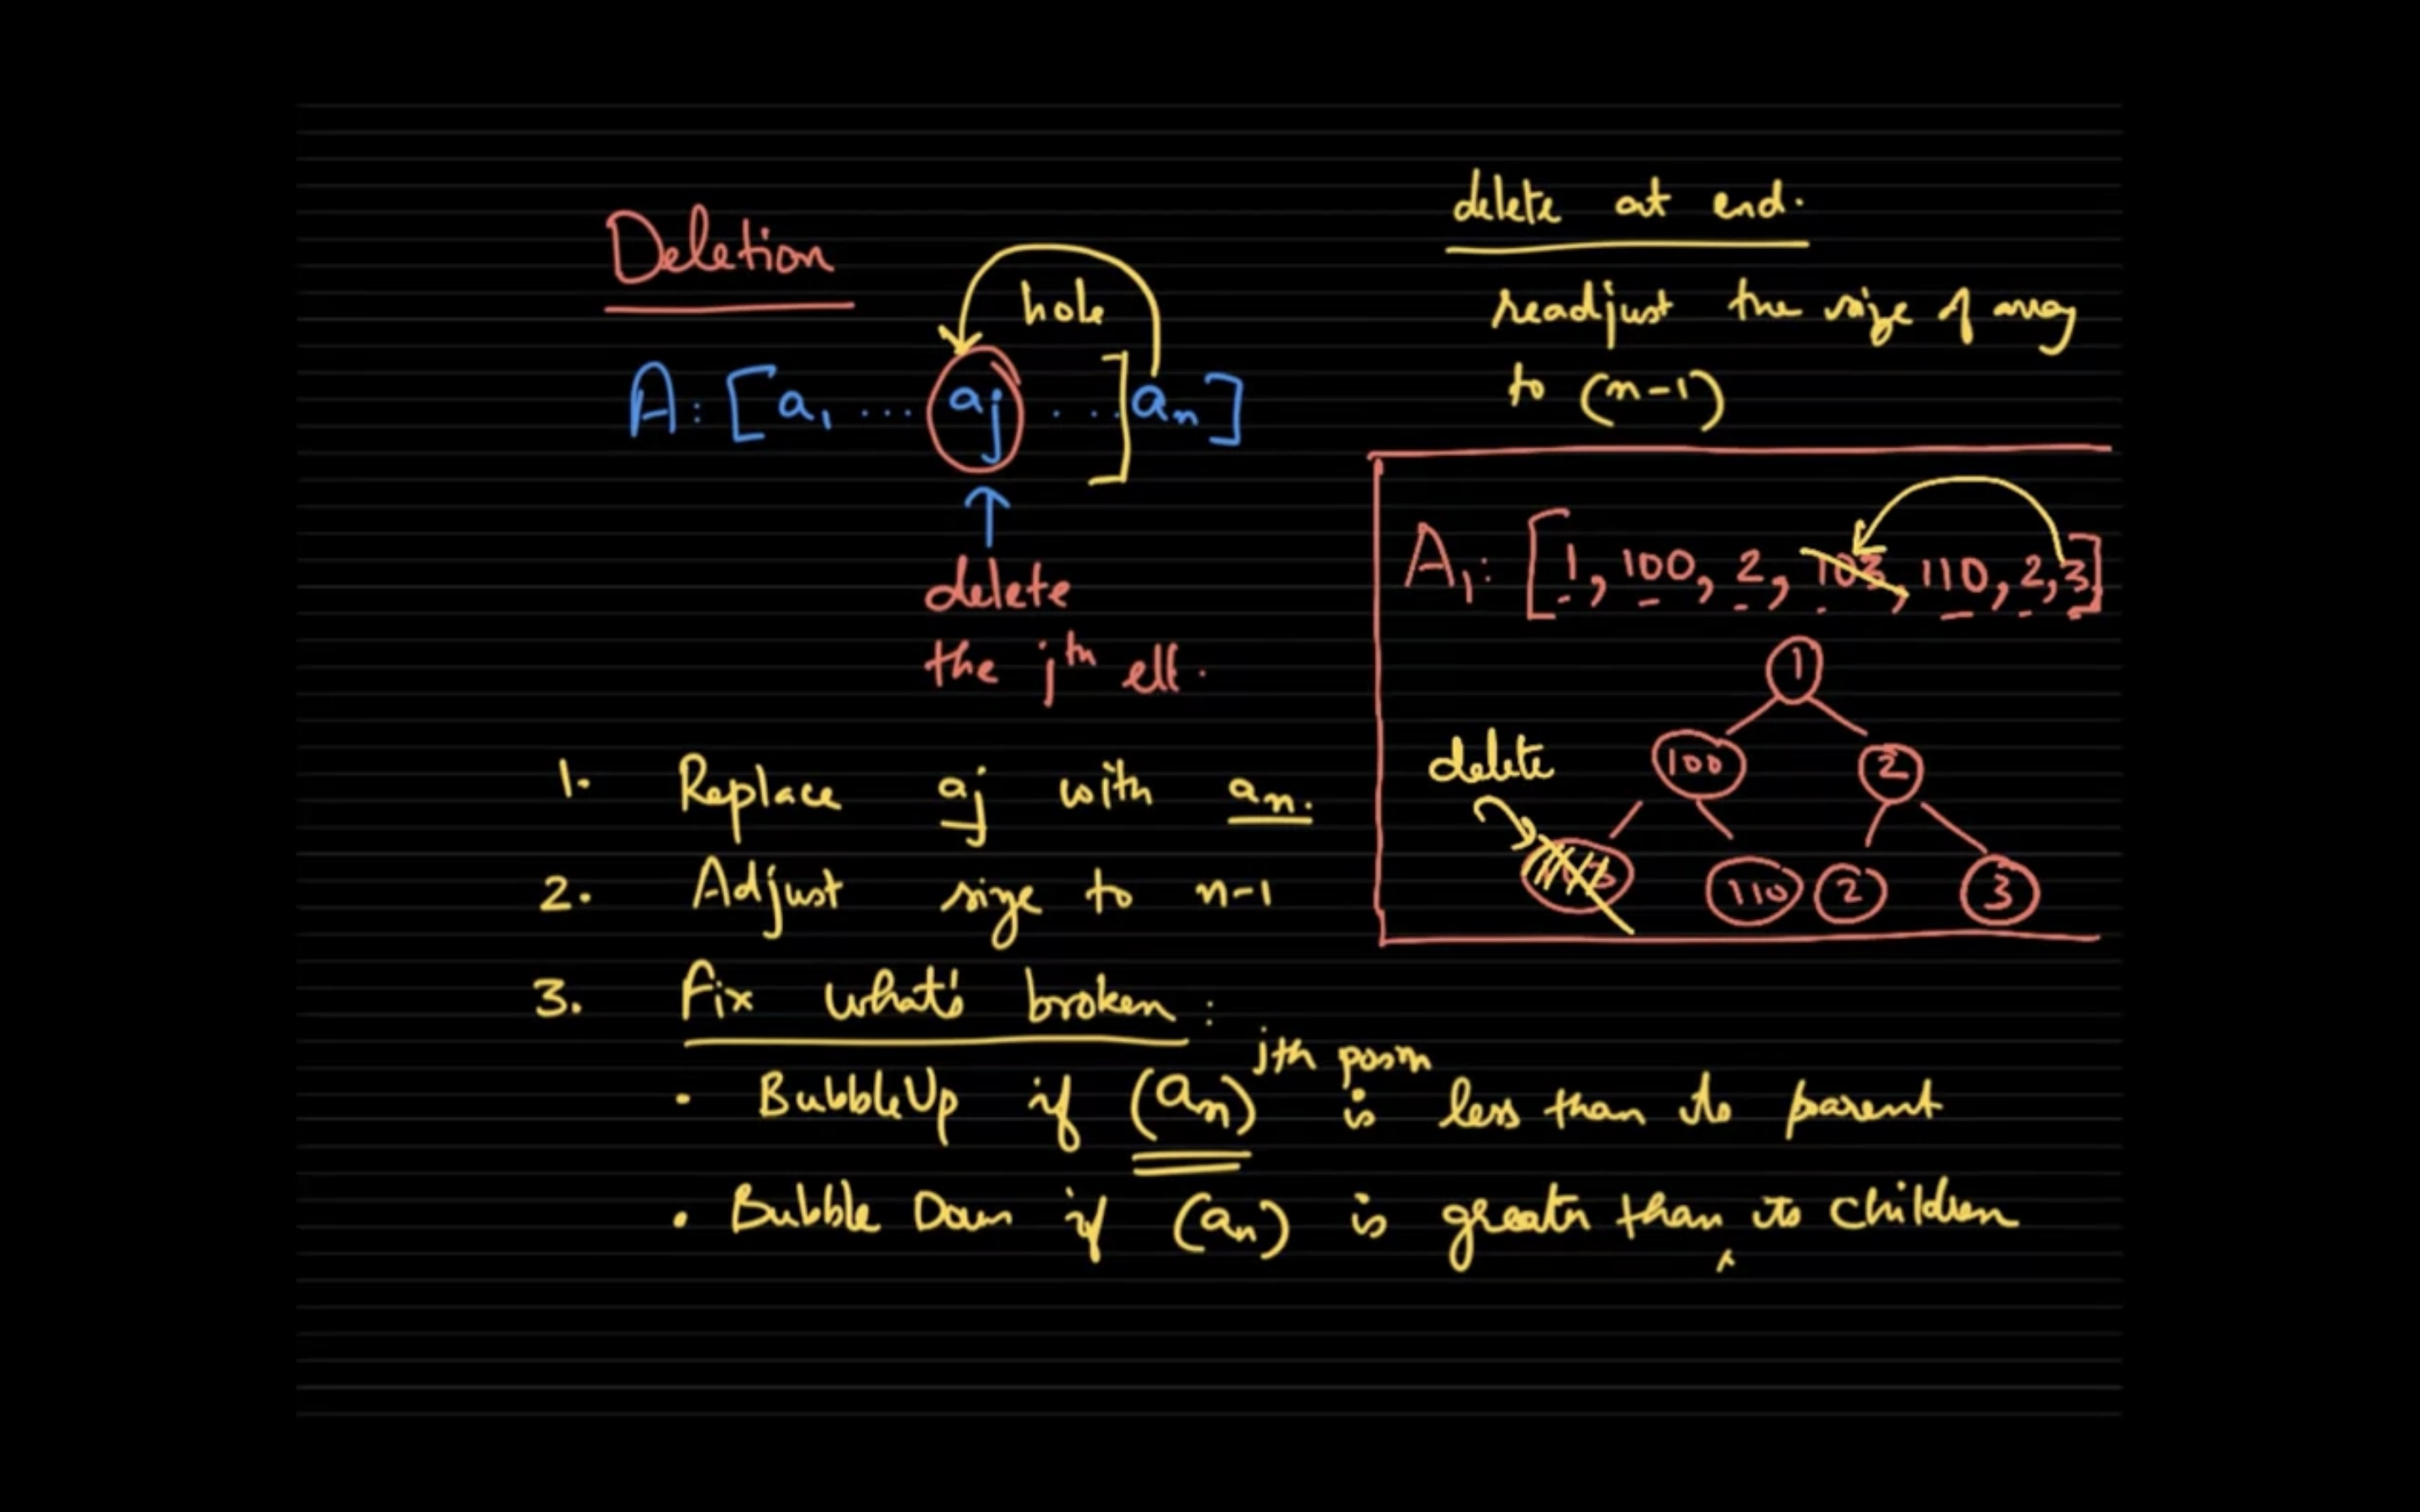 Deletion
hole
A: [a1 ... aj ... ] an]
delete
the jth ell.
delete at end.
readjust the size of array
to (n-1)
A1: [1, 100, 2, 103, 110, 2, 3]
1
100
2
delete
110
2
3
1. Replace aj with an.
2. Adjust size to n-1
3. Fix what's broken:
jth posn
• BubbleUp if (an) is less than its parent
• Bubble Down if (an) is greater than its children